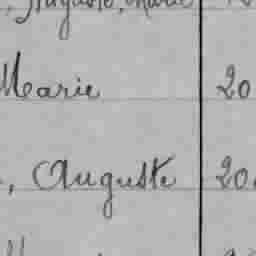 , Auguste, Marie
Marie 20
, Auguste 20